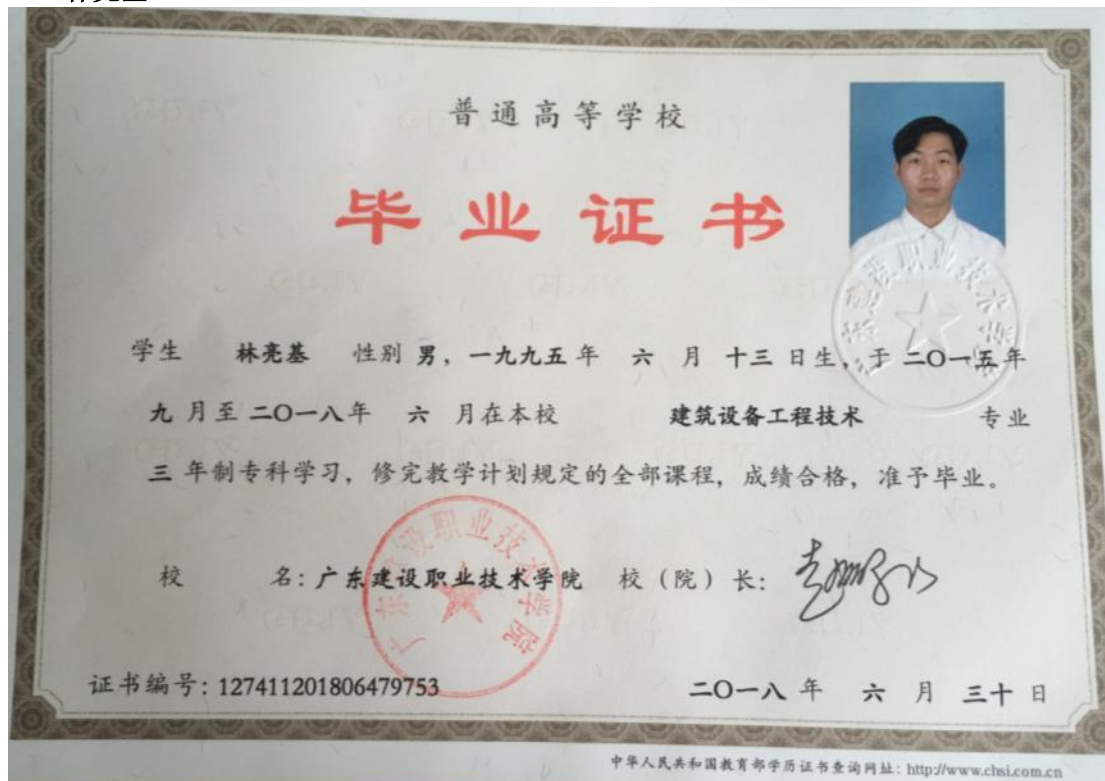 普通高等学校
毕业证书
学生 林亮基 性别 男，一九九五年 六 月 十三 日生，于 二〇一五年
九 月至 二〇一八年 六 月在本校 建筑设备工程技术 专业
三 年制专科学习，修完教学计划规定的全部课程，成绩合格，准予毕业。
校 名：广东建设职业技术学院 校（院）长：
广东建设职业技术学院
证书编号：127411201806479753
二〇一八 年 六 月 三十 日
中华人民共和国教育部学历证书查询网址：http://www.chsi.com.cn